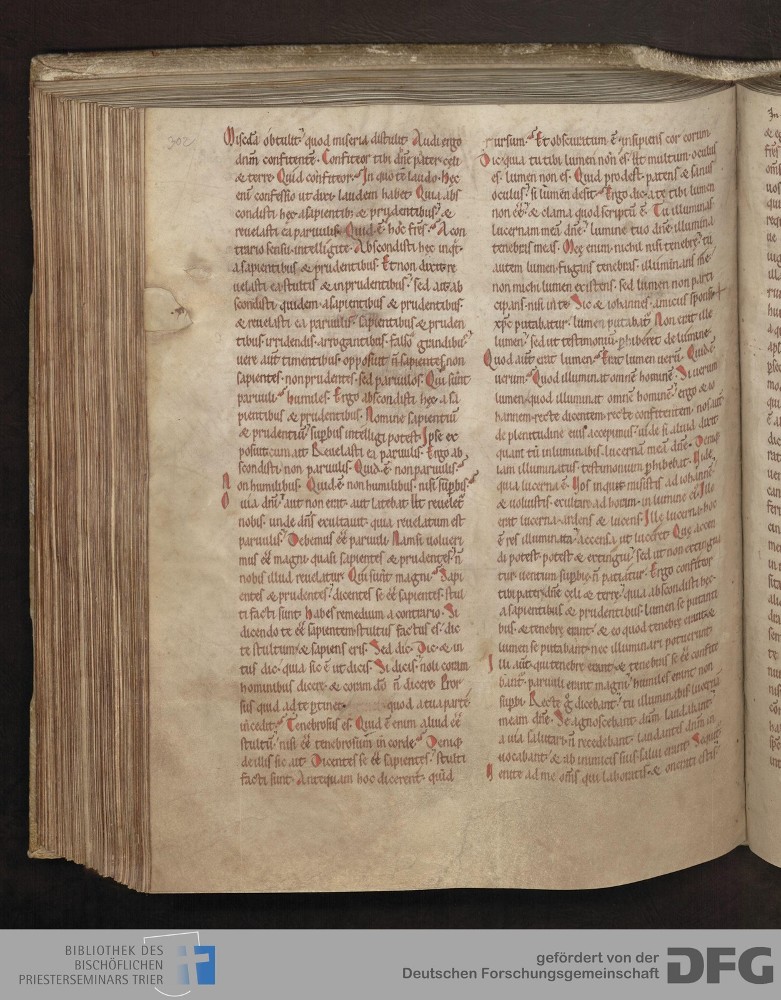 302
obtulit quod miseria distulit. Audi ergo
confitentē. Confiteor tibi dñe pater celi
& terre. Quid confiteor. In quo te laudo. Hec
enī confessio ut dixi laudem habet. Quia abs
condisti hec a sapientib; & prudentibus. &
reuelasti ea paruulis. Quid ē hoc frēs. A con
trario sensu intelligite. Abscondisti hec inqt.
a sapientibus & prudentibus. Et non dixit re
uelasti ea stultis & inprudentibus. sed ait ab
scondisti quidem a sapientibus & prudentibus.
& reuelasti ea paruulis. sapientibus & pruden
tibus irridendis. arrogantibus. falso grandibus.
uere autē timentibus opposuit ñ sapientes non
sapientes. non prudentes. sed paruulos. Qui sunt
paruuli. humiles. Ergo abscondisti hec a sa
pientibus & prudentibus. Nomine sapientiū
& prudentiū supbos intelligi potest. Ipse ex
posuit cum ait. Reuelasti ea paruulis. Ergo ab
scondisti non paruulis. Quid ē non paruulis.
Non humilibus. Quid ē non humilibus nisi supbis.
O uia dñi aut non erat. aut latebat
nobis. unde dñs exultauit. quia reuelatum est
paruulis. Debemus eē paruuli. Nam si uolueri
mus eē magni quasi sapientes & prudentes. ñ
nobis illud reuelatur. Qui sunt magni. Sapi
entes & prudentes. dicentes se eē sapientes stul
ti facti sunt. Habes remedium a contrario. Si
dicendo te eē sapientem stultus factus es. dic
te stultum & sapiens eris. Sed dic. Dic & in
tus dic. quia sic ē ut dicis. Si dicis. noli coram
hominibus dicere & coram dō ñ dicere. Pror
sus quod ad te ptinet. quod a tua parte
incedit. Tenebrosus es. Quid ē enim aliud eē
stultū. nisi eē tenebrosum in corde. Deniq;
de illis sic ait. Dicentes se eē sapientes. stulti
facti sunt. Antequam hoc dicerent. quid
rursum. Et obscuratum ē insipiens cor eorum.
Dic quia tu tibi lumen non es. Ut multum oculus
es. lumen non es. Quid prodest patens & sanus
oculus. si lumen desit. Ergo dic a te tibi lumen
non eē. & clama quod scriptū ē. Tu illuminas
lucernam meā dñe. lumine tuo dñe illumina
tenebras meas. Meę enim nichil nisi tenebre. tu
autem lumen fugans tenebras. illuminans me.
non michi lumen existens. sed lumen non parti
cipans nisi in te. Sic & iohannes. amicus sponsi
xp̄c putabatur. lumen putabat. Non erat ille
lumen. sed ut testimoniū phiberet de lumine.
Quod autē erat lumen. Erat lumen uerū. Quid ē
uerum. Quod illuminat omnē hominē. Si uerum
lumen. quod illuminat omnē hominē. ergo & io
hannem. recte dicentem. recte confitentem. nos autē
de plenitudine eius accepimus. uide si aliud dixit.
quam tu inluminabis lucernā meā dñe. Deniq;
iam illuminatus. testimonium phibebat.
quia lucerna ē. Vos inquit misistis ad iohannē.
& uoluistis exultare ad horam in lumine ei. Ille
erat lucerna ardens & lucens. Ille lucerna. hoc
ē res illuminata. accensa ut luceret. Que accen
di potest. potest & extingui. sed ut non extingua
tur. uentum supbie ñ patiatur. Ergo confiteor
tibi pater dñe celi & terre. quia abscondisti hec
a sapientibus & prudentibus. lumen se putanti
bus. & tenebre erant. & eo quod tenebre erant &
lumen se putabant. nec illuminari potuerunt.
Illi autē qui tenebre erant & tenebras se eē confite
bant. paruuli erant magni. humiles erant non
supbi. Recte g dicebant. tu illuminabis lucernā
meam dñe. Se agnoscebant. dñm laudabant.
a uia salutari ñ recedebant. laudantes dñm in
uocabant. & ab inimicis suis salui erant.
Venite ad me omēs qui laboratis. & onerati estis.
BIBLIOTHEK DES
BISCHÖFLICHEN
PRIESTERSEMINARS TRIER
gefördert von der
Deutschen Forschungsgemeinschaft
DFG